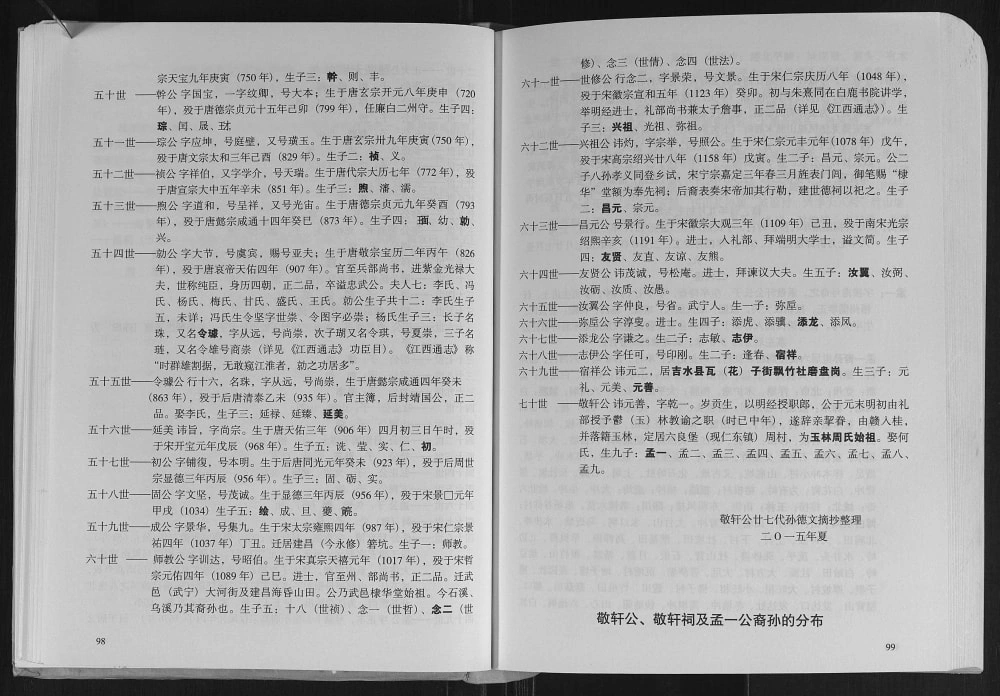 宗天宝九年庚寅（750 年），生子三：幹、则、丰。
五十世 ——幹公 字国宝，一字纹卿，号大本；生于唐玄宗开元八年庚申（720
年），殁于唐德宗贞元十五年己卯（799 年），任廉白二州守。生子四：
琮、闰、晟、
五十一世——琮公 字应坤，号庭璧，又号璜玉。生于唐玄宗卅九年庚寅（750 年），
殁于唐文宗太和三年己酉（829 年）。生子二：祯、义。
五十二世——祯公 字祥伯，又字学介，号天瑞。生于唐代宗大历七年（772 年），殁
于唐宣宗大中五年辛未（851 年）。生子三：煦、潘、濡。
五十三世——煦公 字道和，号呈祥，又号光宙。生于唐德宗贞元九年癸酉（793
年），殁于唐懿宗咸通十四年癸巳（873 年）。生子四：、幼、勍、
兴。
五十四世——勍公 字大节，号虞宾，赐号亚夫；生于唐敬宗宝历二年丙午（826
年），殁于唐哀帝天佑四年（907 年）。官至兵部尚书，进紫金光禄大
夫，世称纯臣，身历四朝，正二品，卒谥忠武公。夫人七：李氏、冯
氏、杨氏、梅氏、甘氏、盛氏、王氏。勍公生子共十二：李氏生子
五，未详；冯氏生令坚字世崇、令图字必崇；杨氏生子三：长子名
珠，又名令璩，字从远，号尚崇，次子瑚又名令琪，号夏崇，三子名
琏，又名令雄号商崇（详见《江西通志》功臣目）。《江西通志》称
“时群雄割据，无敢窥江淮者，勍之功居多”。
五十五世——令璩公 行十六，名珠，字从远，号尚崇，生于唐懿宗咸通四年癸未
（863 年），殁于后唐清泰乙未（935 年）。官主簿，后封靖国公，正二
品。娶李氏，生子三：延禄、延臻、延美。
五十六世——延美 讳旨，字尚宗。生于唐天佑三年（906 年）四月初三日午时，殁
于宋开宝元年戊辰（968 年）。生子五：洗、莹、实、仁、初。
五十七世——初公 字铺復，号本明。生于后唐同光元年癸未（923 年），殁于后周世
宗显德三年丙辰（956 年）。生子三：固、砺、实。
五十八世——固公 字文坚，号茂诚。生于显德三年丙辰（956 年），殁于宋景□元年
甲戌（1034）。生子五：绘、成、旦、夔、巍。
五十九世——成公 字景华，号集九。生于宋太宗雍熙四年（987 年），殁于仁宗景
祐四年（1037 年）丁丑。迁居建昌（今永修）箬坑。生子一：师教。
六十世 —— 师教公 字训达，号昭伯。生于宋真宗天禧元年（1017 年），殁于宋哲
宗元佑四年（1089 年）己巳。进士，官至州、部尚书，正二品。迁武
邑（武宁）大河街及建昌海昏山田。公乃武邑棣华堂始祖。今石溪、
乌溪乃其裔孙也。生子五：十八（世祯）、念一（世哲）、念二（世
98
修）、念三（世倩）、念四（世法）。
六十一世——世修公 行念二，字景荣，号文景。生于宋仁宗庆历八年（1048 年），
殁于宋徽宗宣和五年（1123 年）癸卯。初与朱熹同在白鹿书院讲学，
举明经进士，礼部尚书兼太子詹事，正二品（详见《江西通志》）。生
子三：兴祖、光祖、弥祖。
六十二世——兴祖公 讳灼，字宗举，号照公。生于宋仁宗元丰元年(1078 年）戊午，
殁于宋高宗绍兴廿八年（1158 年）戊寅。生二子：昌元、宗元。公二
子八孙孝义同登乡试，宋宁宗嘉定三年春三月旌表门闾，御笔赐“棣
华”堂额为奉先祠；后裔表奏宋帝加其行勒，建世德祠以祀之。生子
二：昌元、宗元。
六十三世——昌元公 号景行。生于宋徽宗大观三年（1109 年）己丑，殁于南宋光宗
绍熙辛亥（1191 年）。进士，入礼部、拜端明大学士，谥文简。生子
四：友贤、友直、友谅、友熊。
六十四世——友贤公 讳茂诚，号松庵。进士，拜谏议大夫。生五子：汝翼、汝弼、
汝砺、汝质、汝愚。
六十五世——汝翼公 字仲良，号省。武宁人。生一子：弥垕。
六十六世——弥垕公 字淳叟。进士。生四子：添虎、添骥、添龙、添凤。
六十七世——添龙公 字谦之。生二子：志敏、志伊。
六十八世——志伊公 字任可，号印刚。生二子：逢春、宿祥。
六十九世——宿祥公 讳元二，居吉水县瓦（花）子街飘竹杜磨盘岗。生三子：元
礼、元美、元善。
七十世 ——敬轩公 讳元善，字乾一。岁贡生，以明经授职郎，公于元末明初由礼
部授予鬱（玉）林教谕之职（时已中年），遂辞亲挈眷，由赣入桂，
并落籍玉林，定居六良堡（现仁东镇）周村，为玉林周氏始祖。娶何
氏，生九子：孟一、孟二、孟三、孟四、孟五、孟六、孟七、孟八、
孟九。
敬轩公廿七代孙德文摘抄整理
二O一五年夏
敬轩公、敬轩祠及孟一公裔孙的分布
99